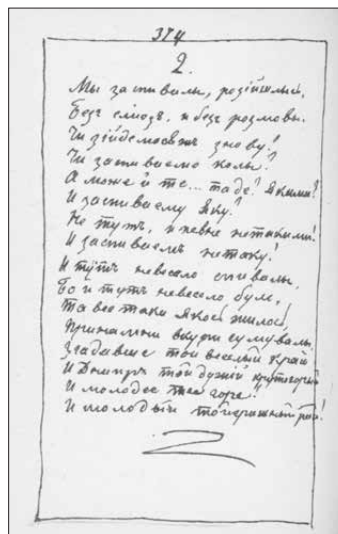 374
2.
Мы заспивалы, розійшлысь,
Безъ слiозъ, и безъ розмовы.
Чи зійдемося жъ знову?
Чи заспиваемо колы?
А може й те... та де? Якими?
И заспиваему яку?
Не тутъ, и певне не такими!
И заспиваемъ не таку!
И тутъ невесело спивалы,
Бо и тутъ невесело було,
Та все таки якось жилось,
Принаймни вкупи сумувалы,
Згадавше той веселый край
И Днипръ той дужій крутогорый
И молодее тее горе!
И молодый той гришный рай!